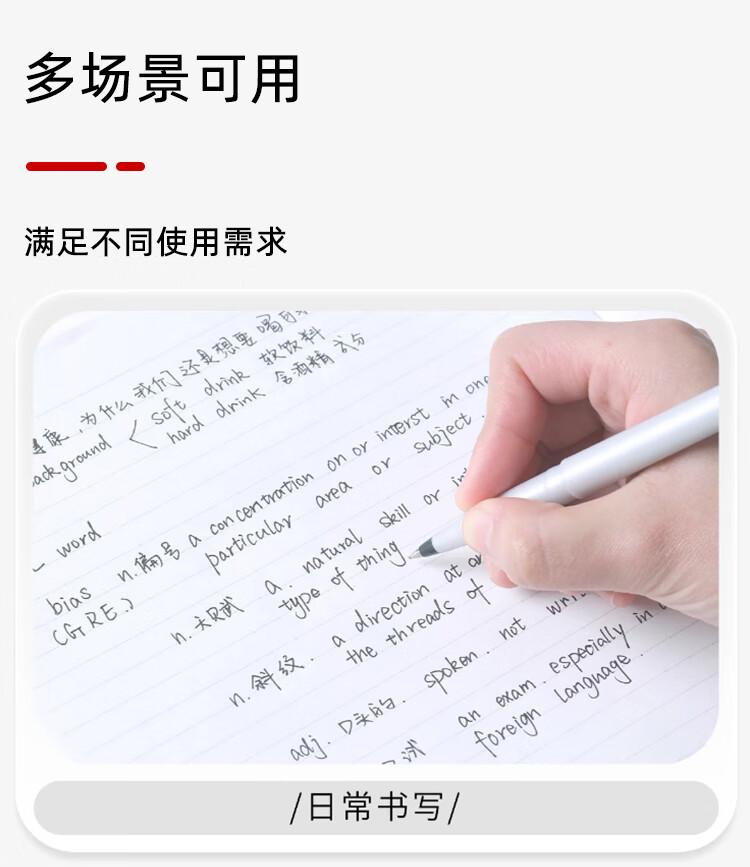 多场景可用
满足不同使用需求
为什么我们还是想要喝
background < soft drink 软饮料
hard drink 含酒精
word
bias n.偏号 a concentration on or interst in one
(GRE) particular area or subject.
n. a. natural skill or
type of thing
n.斜纹. a direction at
the threads of
adj. 口头的. spoken. not
an exam. especially in
foreign language.
/日常书写/